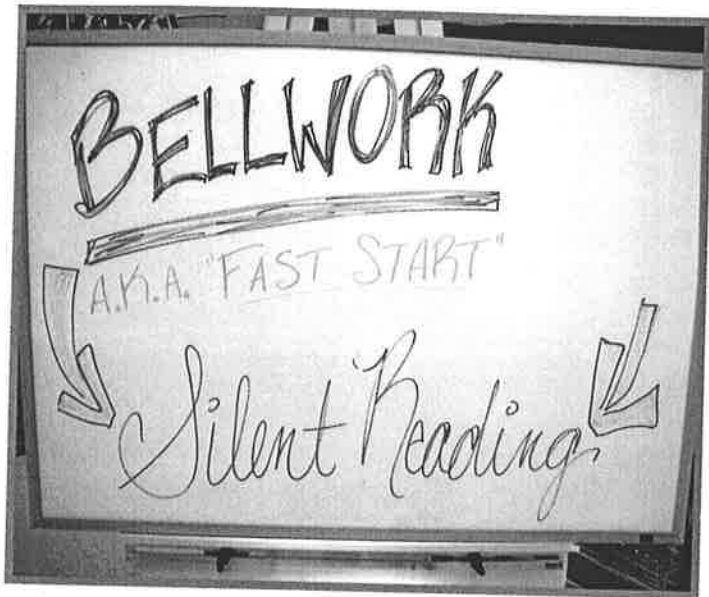 BELLWORK
A.K.A. "FAST START"
Silent Reading